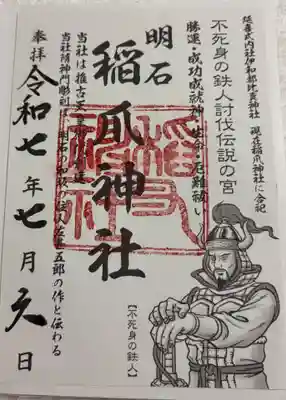 延喜式内社伊和都比売神社 現在稲爪神社に合祀
不死身の鉄人討伐伝説の宮
勝運・成功成就神 生命・厄難祓い
明石
稲爪神社
当社は推古天皇
当社随神門彫刻は、明石の
五郎の作と伝わる
奉拝
令和七年七月
日
【不死身の鉄人】